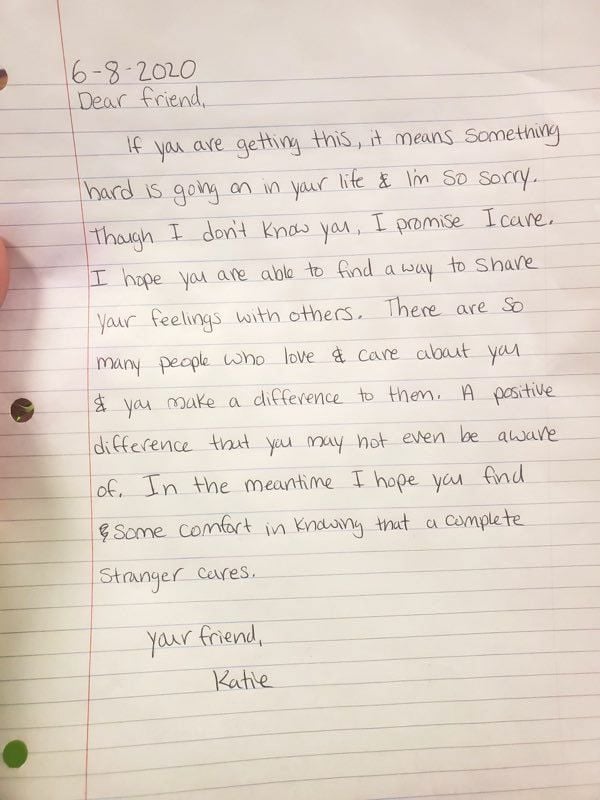 6-8-2020
Dear friend,
If you are getting this, it means something
hard is going on in your life & I'm so sorry.
Though I don't know you, I promise I care.
I hope you are able to find a way to share
your feelings with others. There are so
many people who love & care about you
& you make a difference to them. A positive
difference that you may not even be aware
of. In the meantime I hope you find
some comfort in knowing that a complete
stranger cares.
your friend,
Katie